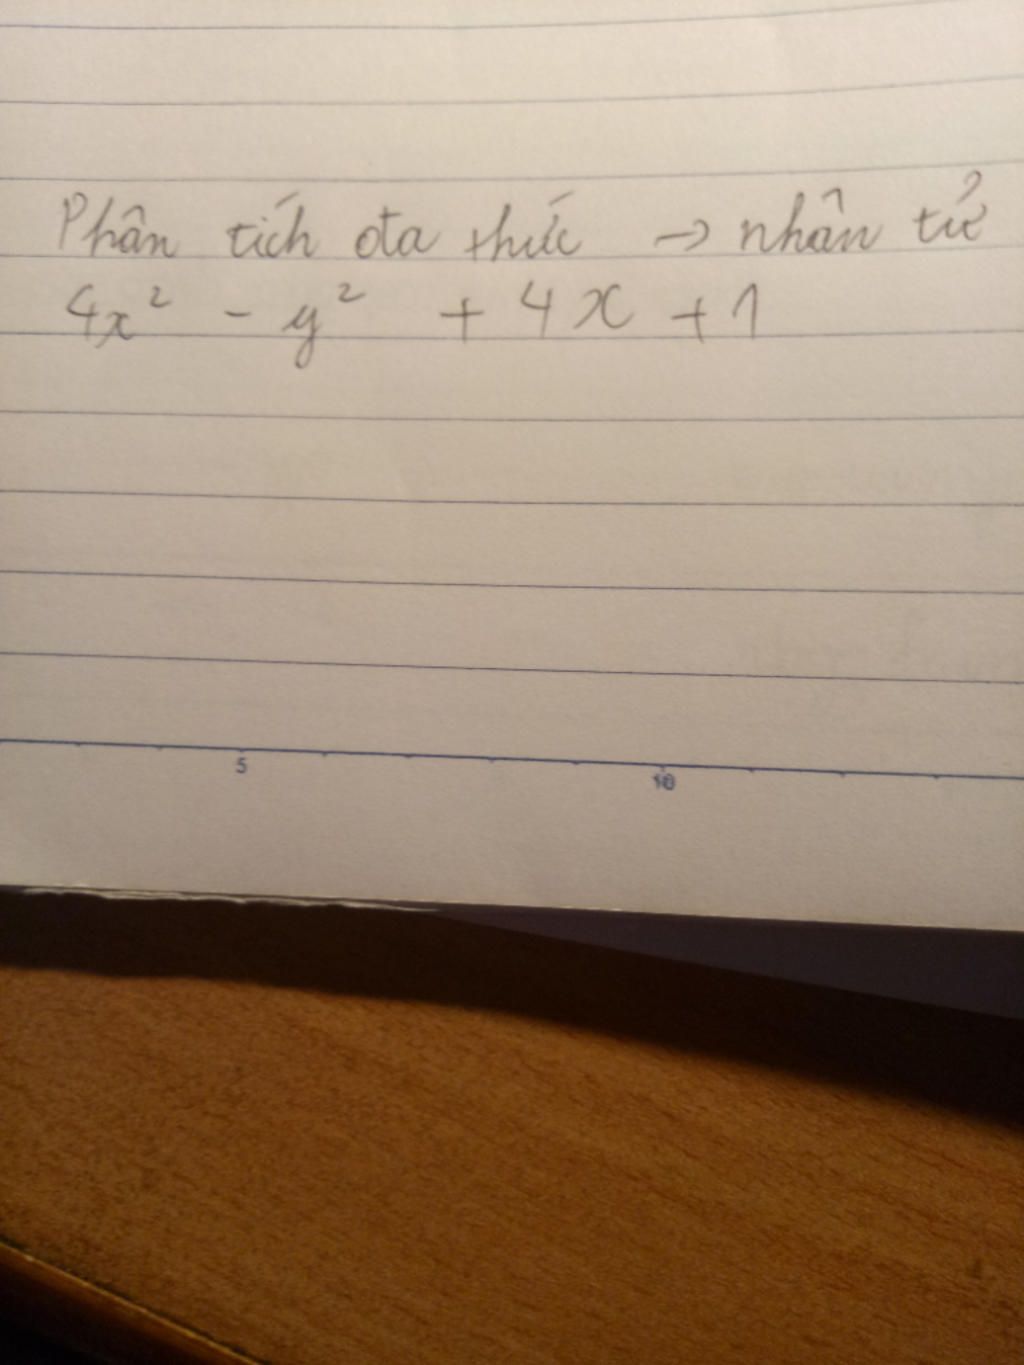 Phân tích đa thức → nhân tử
4x² - y² + 4x + 1
5 10